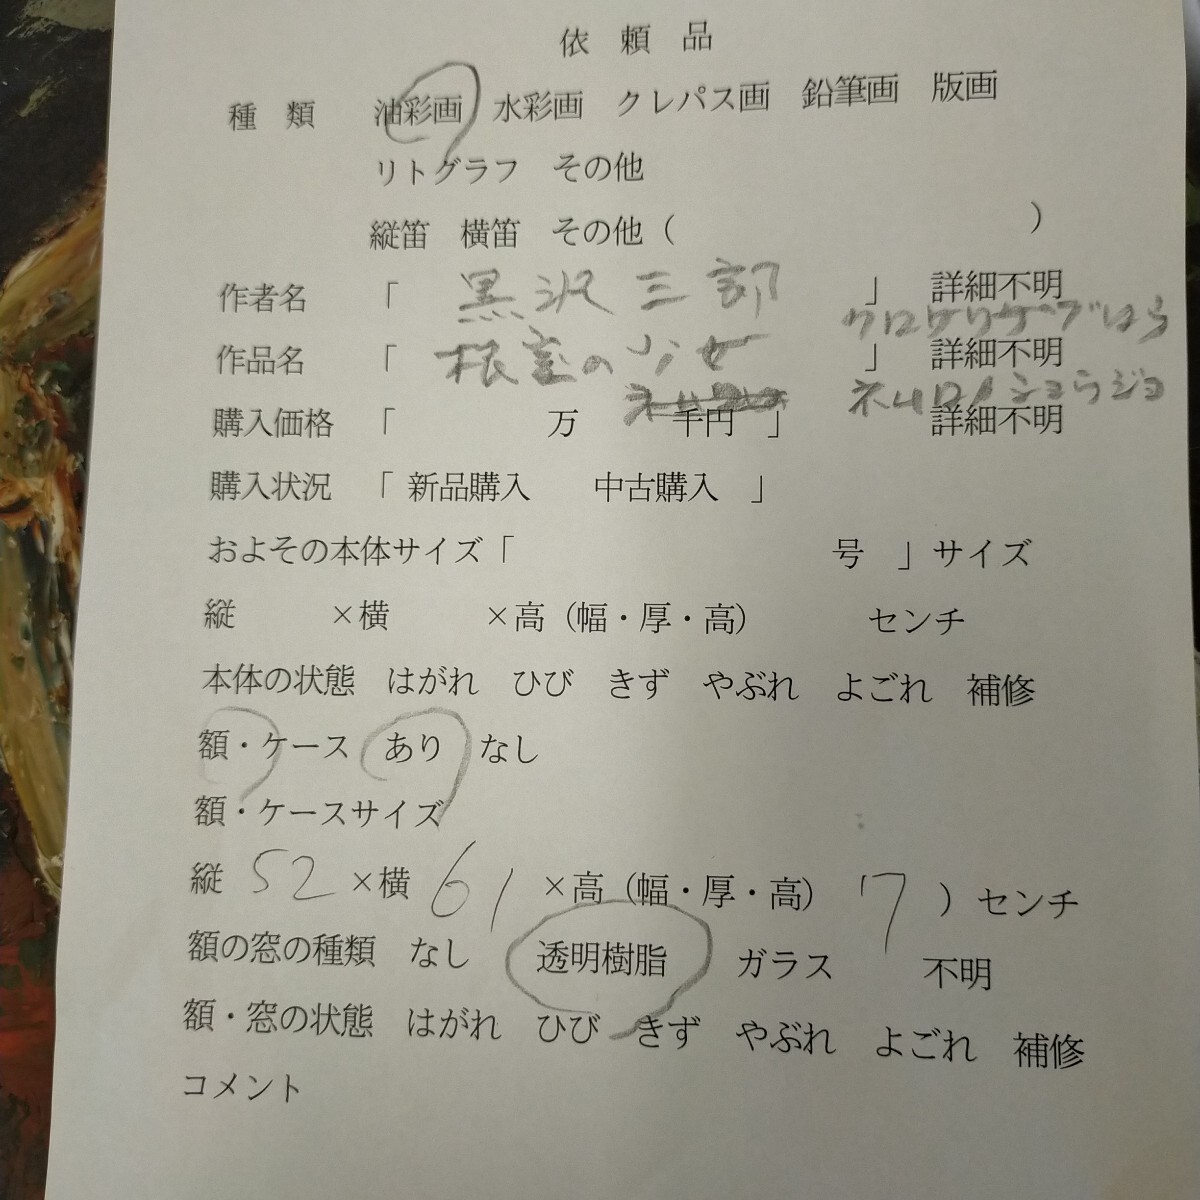 依 頼 品
種 類 油彩画 水彩画 クレパス画 鉛筆画 版画
リトグラフ その他
縦笛 横笛 その他（ ）
作者名 「 黒沢三郎 」 詳細不明
クロサワサブロウ
作品名 「 根室の少女 」 詳細不明
ネムロノショウジョ
購入価格 「 万 千円 」 詳細不明
購入状況 「 新品購入 中古購入 」
およその本体サイズ「 号 」サイズ
縦 ×横 ×高（幅・厚・高） センチ
本体の状態 はがれ ひび きず やぶれ よごれ 補修
額・ケース あり なし
額・ケースサイズ
縦 52 ×横 61 ×高（幅・厚・高） 7 ）センチ
額の窓の種類 なし 透明樹脂 ガラス 不明
額・窓の状態 はがれ ひび きず やぶれ よごれ 補修
コメント